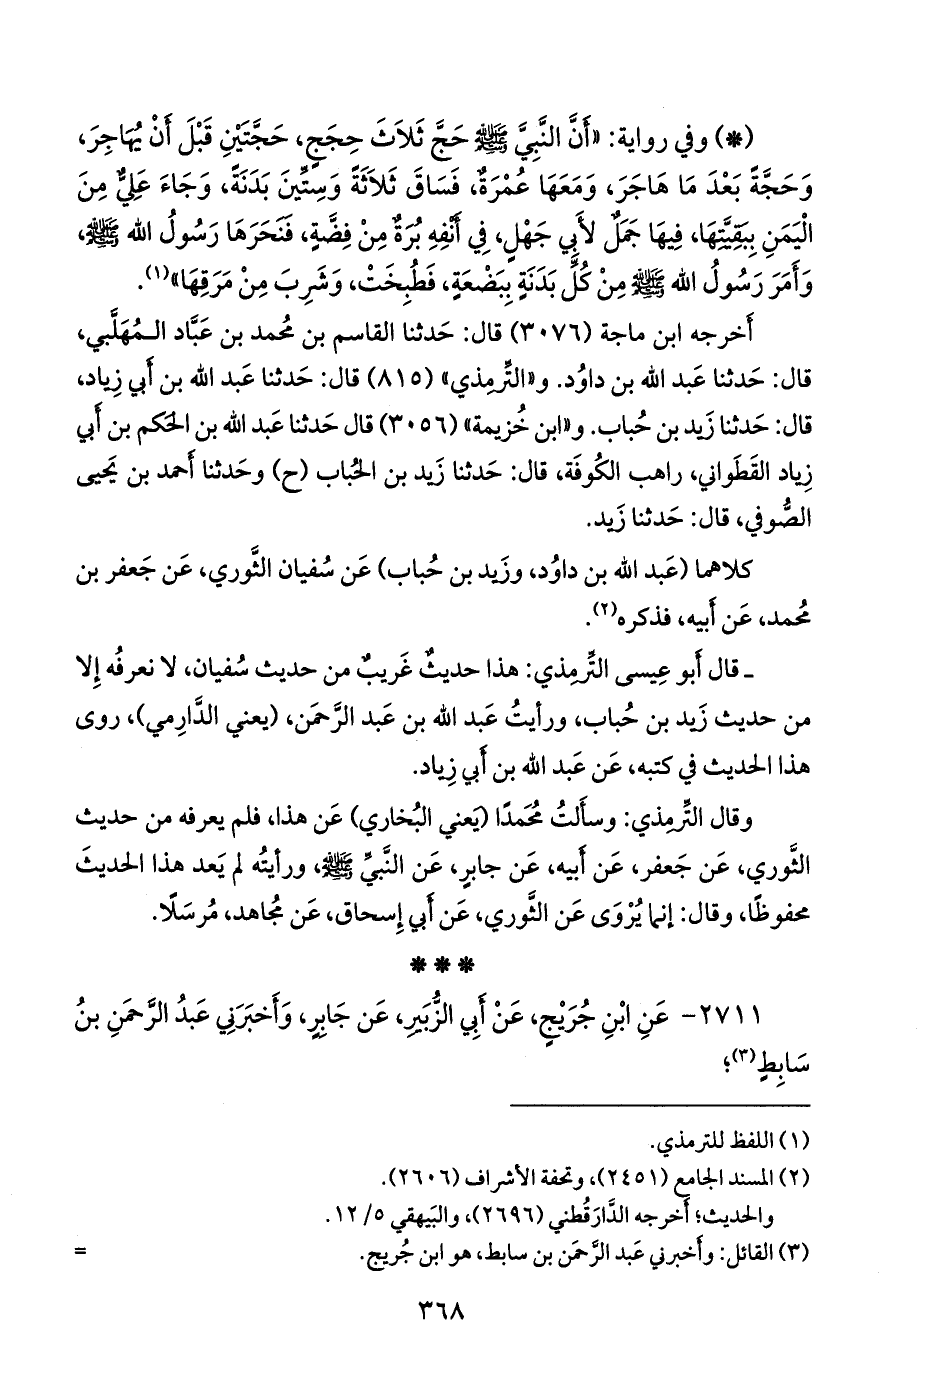 (*) وفي رواية: «أَنَّ النَّبِيَّ ﷺ حَجَّ ثَلَاثَ حِجَجٍ، حَجَّتَيْنِ قَبْلَ أَنْ يُهَاجِرَ،
وَحَجَّةً بَعْدَ مَا هَاجَرَ، وَمَعَهَا عُمْرَةٌ، فَسَاقَ ثَلَاثَةً وَسِتِّينَ بَدَنَةً، وَجَاءَ عَلِيٌّ مِنَ
الْيَمَنِ بِبَقِيَّتِهَا، فِيهَا جَمَلٌ لأَبِي جَهْلٍ، فِي أَنْفِهِ بُرَةٌ مِنْ فِضَّةٍ، فَنَحَرَهَا رَسُولُ الله ﷺ،
وَأَمَرَ رَسُولُ الله ﷺ مِنْ كُلِّ بَدَنَةٍ بِبَضْعَةٍ، فَطُبِخَتْ، وَشَرِبَ مِنْ مَرَقِهَا»(١).
أَخرجه ابن ماجة (٣٠٧٦) قال: حَدثنا القاسم بن مُحمد بن عَبَّاد الـمُهَلَّبي،
قال: حَدثنا عَبد الله بن داوُد. و«التِّرمِذي» (٨١٥) قال: حَدثنا عَبد الله بن أَبي زِياد،
قال: حَدثنا زَيد بن حُباب. و«ابن خُزيمة» (٣٠٥٦) قال حَدثنا عَبد الله بن الحَكم بن أَبي
زِياد القَطَواني، راهب الكُوفَة، قال: حَدثنا زَيد بن الحُباب (ح) وحَدثنا أَحمد بن يَحيى
الصُّوفي، قال: حَدثنا زَيد.
كلاهما (عَبد الله بن داوُد، وزَيد بن حُباب) عَن سُفيان الثَّوري، عَن جَعفر بن
مُحمد، عَن أَبيه، فذكره(٢).
ـ قال أَبو عِيسى التِّرمِذي: هذا حديثٌ غَريبٌ من حديث سُفيان، لا نعرفُه إِلا
من حديث زَيد بن حُباب، ورأَيتُ عَبد الله بن عَبد الرَّحمَن، (يعني الدَّارِمي)، روى
هذا الحديث في كتبه، عَن عَبد الله بن أَبي زِياد.
وقال التِّرمِذي: وسأَلتُ مُحَمدًا (يَعني البُخاري) عَن هذا، فلم يعرفه من حديث
الثَّوري، عَن جَعفر، عَن أَبيه، عَن جابرٍ، عَن النَّبيِّ ﷺ، ورأَيتُه لم يَعد هذا الحديثَ
محفوظًا، وقال: إِنما يُرْوَى عَن الثَّوري، عَن أَبي إِسحاق، عَن مُجاهد، مُرسَلًا.
* * *
٢٧١١- عَنِ ابْنِ جُرَيْجٍ، عَنْ أَبِي الزُّبَيرِ، عَن جَابِرٍ، وَأَخبَرَنِي عَبدُ الرَّحمَنِ بنُ
سَابِطٍ(٣)؛
(١) اللفظ للترمذي.
(٢) المسند الجامع (٢٤٥١)، وتحفة الأشراف (٢٦٠٦).
والحديث؛ أَخرجه الدَّارَقُطني (٢٦٩٦)، والبَيهقي ٥/ ١٢.
(٣) القائل: وأَخبرني عَبد الرَّحمَن بن سابط، هو ابن جُريج.
=
٣٦٨